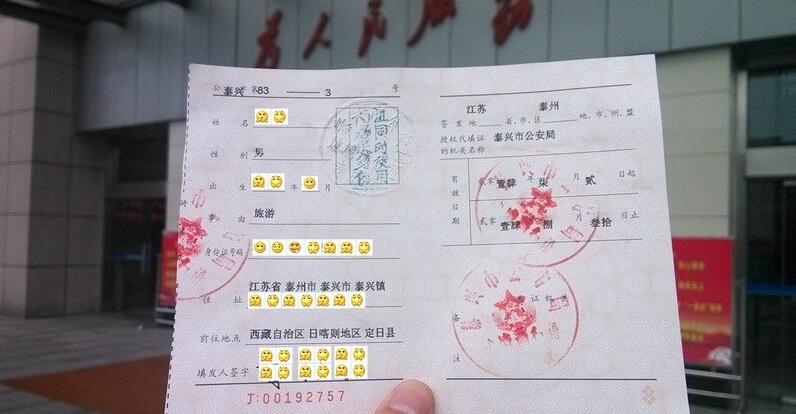 为人民服务
公 泰兴 字第 83 3 号
姓 名
性 别 男
出 生 年 月
事 由 旅游
身份证号码
住 址 江苏省 泰州市 泰兴市 泰兴镇
前往地点 西藏自治区 日喀则地区 定日县
填发人签字
J:00192757
证同时使用
江苏 泰州
签发地 省、市、区 地、市、州、盟
授权代填证的机关名称 泰兴市公安局
有效日期
贰零壹肆年柒月贰日起
贰零壹肆年捌月叁拾日止
发证机关
备注
泰兴市公安局